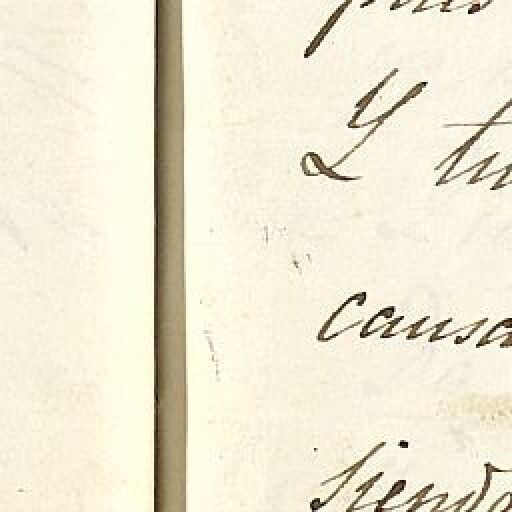 Y tu
causa
siendo